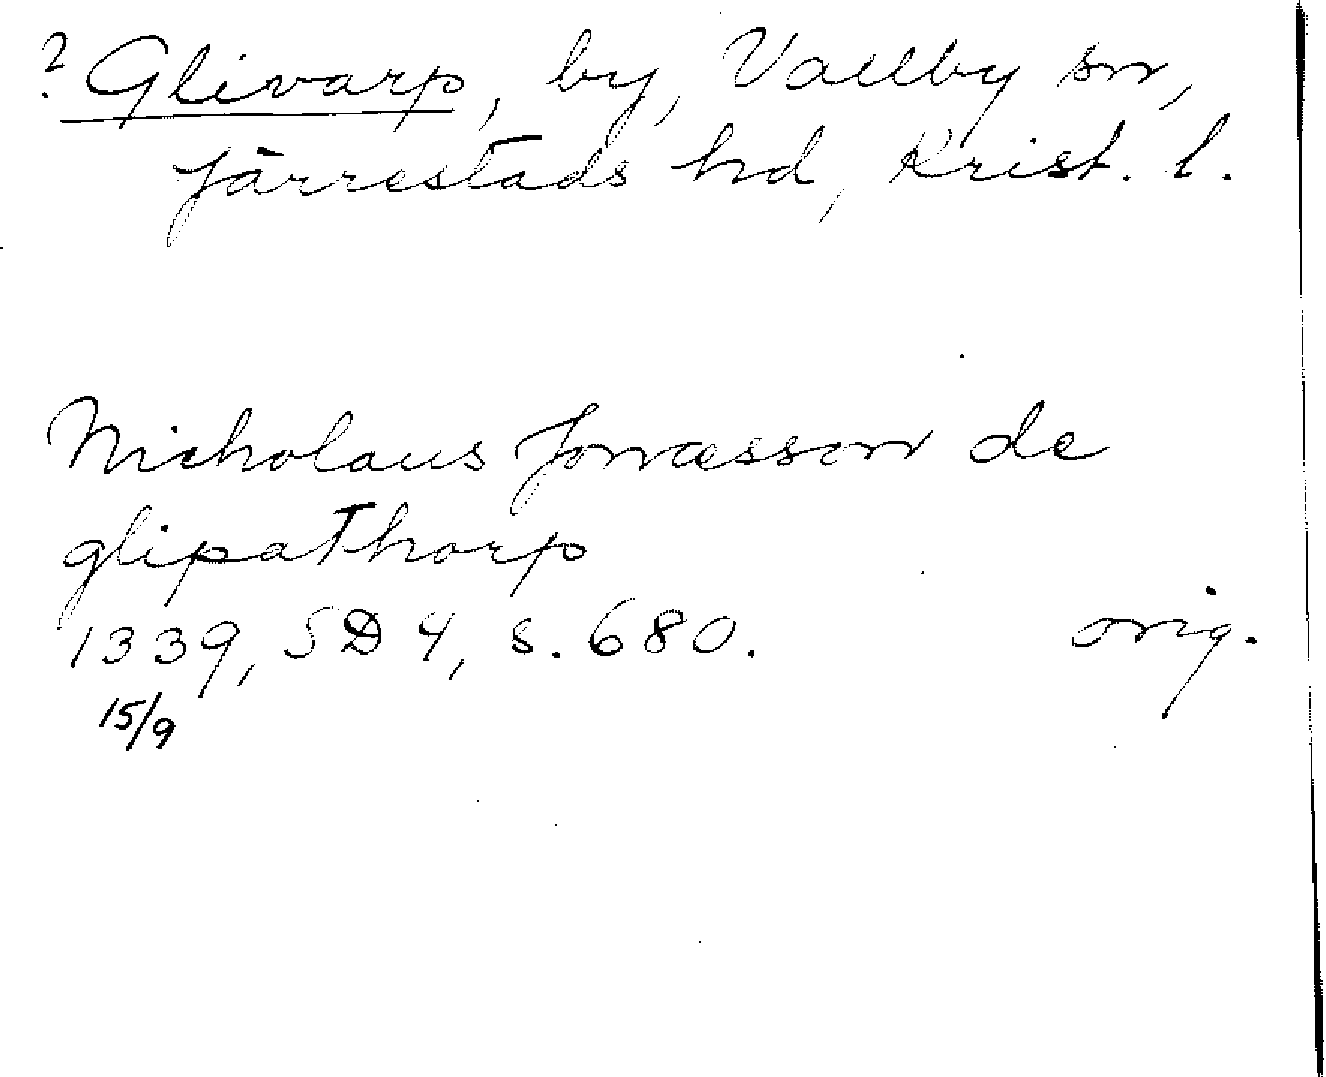 ? Glivarp, by, Vallby sn,
Järrestads hd, Krist. l.
Nicholaus Jonæsson de
glipathorp
1339, SD 4, s. 680. orig.
15/9